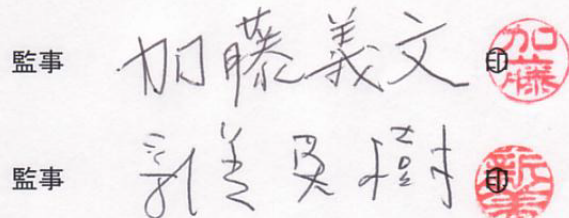 監事 加藤義文 ㊞ 加藤
監事 新美英樹 ㊞ 新美